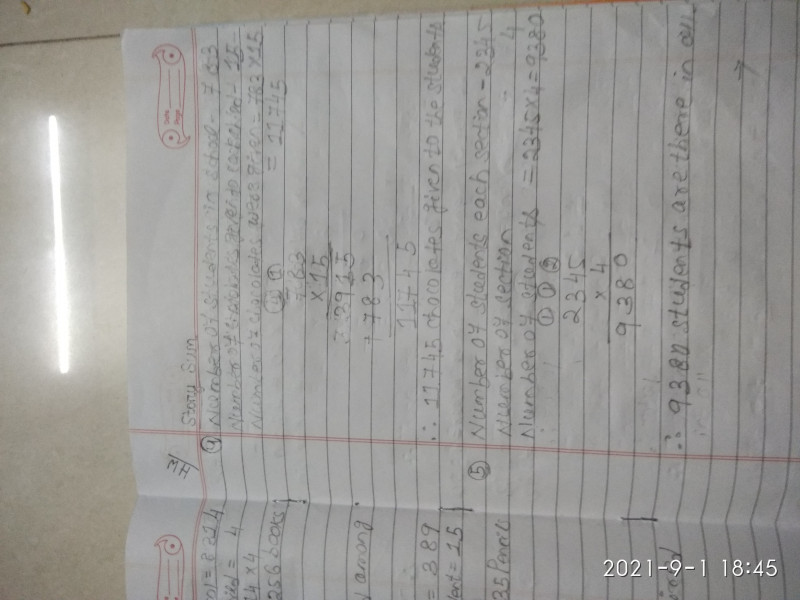 Story Sum
④ Number of students in school - 783
Number of chocolates given to each child - 15
Number of chocolates were given = 783 x 15
= 11745
783
x 15
3915
+ 783
11745
∴ 11745 chocolates given to the students
⑤ Number of students each section - 2345
Number of section - 4
Number of students = 2345 x 4 = 9380
① ① ②
2345
x 4
9380
∴ 9380 students are there in all
= 8214
= 4
14 x 4
256 books
among
= 389
= 15
35 Pencils
2021-9-1 18:45